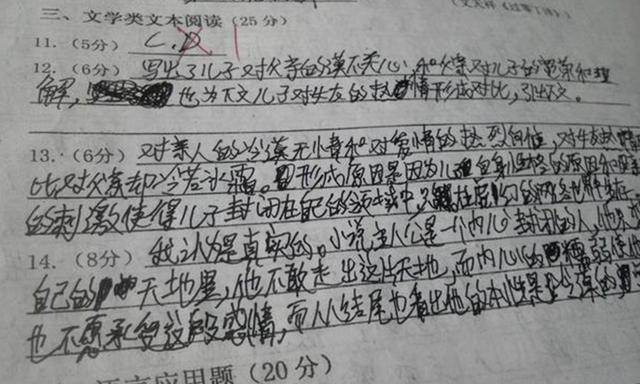 三、文学类文本阅读（25分）
11.（5分） C.D
12.（6分） 写出了儿子对父亲的漠不关心，和父亲对儿子的宽容和理
解，也为下文儿子对女友的热情形成对比，引出下文。
13.（6分） 对亲人的冷漠无情和对爱情的热烈向往，对女友热
比对父亲却冷若冰霜。形成原因是因为儿子自身性格的原因和
的刺激使得儿子封闭在自己的领域中，只
14.（8分） 我认为是真实的。小说主人公是一个内心封闭的人，他
自己的天地里，他不敢走出这片天地，而内心的懦弱使
也不愿承受这段感情，而从结尾也看出他的本性是冷漠的
语言应用题（20分）